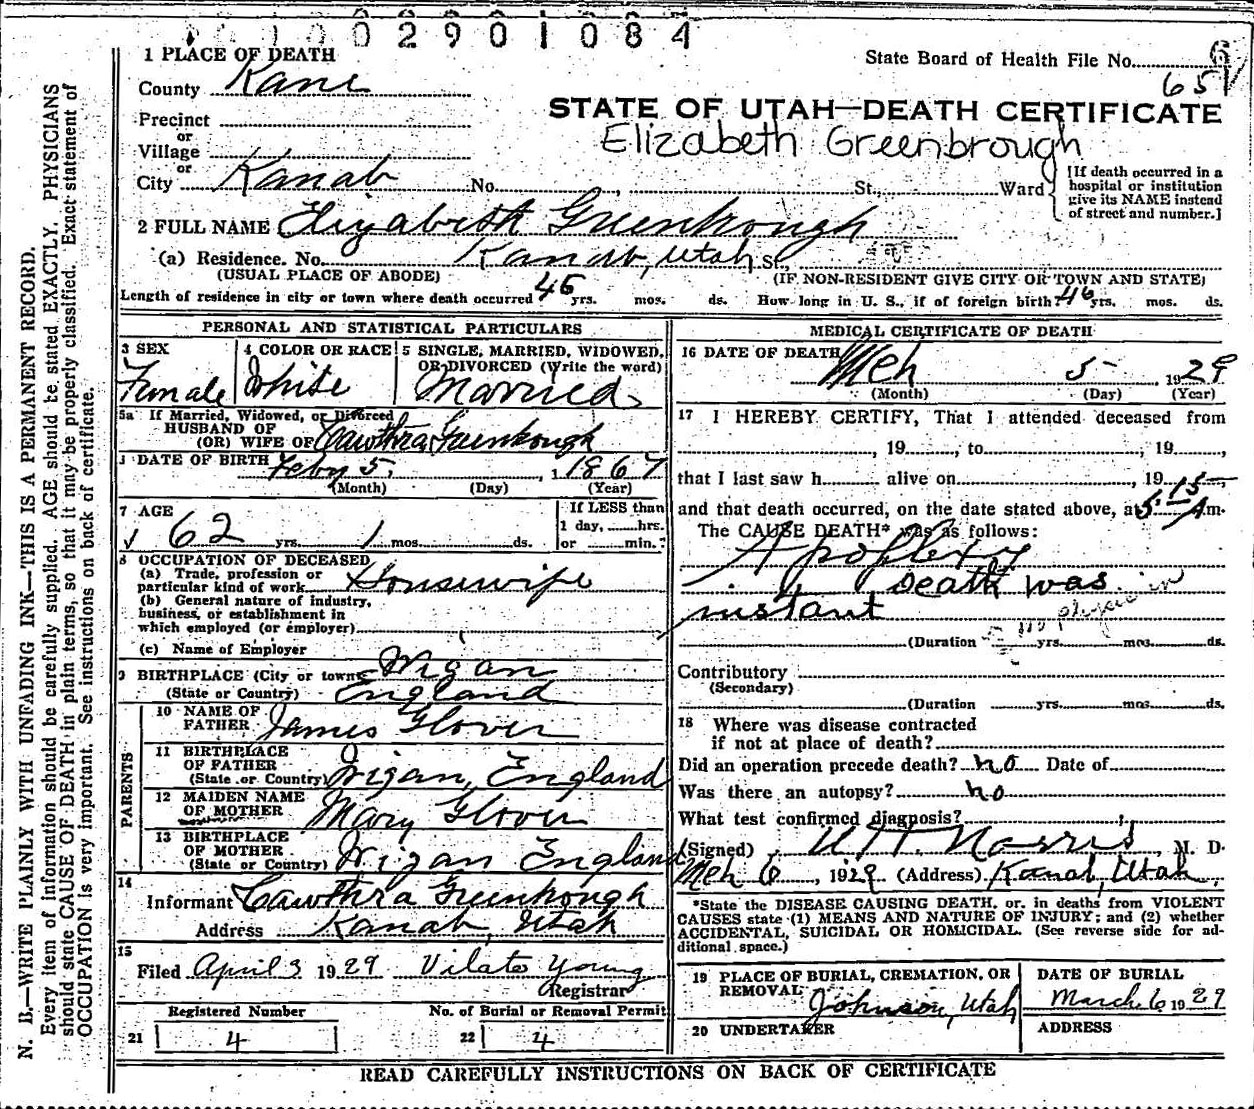 0 0 2 9 0 1 0 8 4
1 PLACE OF DEATH
State Board of Health File No. 6
65
County Kane
STATE OF UTAH—DEATH CERTIFICATE
Precinct
Elizabeth Greenbrough
or
Village
or
City Kanab No. , St. Ward
[If death occurred in a
hospital or institution
give its NAME instead
of street and number.]
2 FULL NAME Elizabeth Greenhough
(a) Residence. No. Kanab, Utah St.,
(USUAL PLACE OF ABODE) (IF NON-RESIDENT GIVE CITY OR TOWN AND STATE)
Length of residence in city or town where death occurred 46 yrs. mos. ds. How long in U. S., if of foreign birth 46 yrs. mos. ds.
PERSONAL AND STATISTICAL PARTICULARS
3 SEX
Female
4 COLOR OR RACE
White
5 SINGLE, MARRIED, WIDOWED,
OR DIVORCED (Write the word)
Married
5a If Married, Widowed, or Divorced
HUSBAND OF
(OR) WIFE OF Cawthra Greenhough
DATE OF BIRTH Feby 5. , 1 1867
(Month) (Day) (Year)
7 AGE
62 yrs. 1 mos. ds.
If LESS than
1 day, hrs.
or min.?
8 OCCUPATION OF DECEASED
(a) Trade, profession or
particular kind of work Housewife
(b) General nature of industry,
business, or establishment in
which employed (or employer)
(c) Name of Employer
9 BIRTHPLACE (City or town) Wigan
(State or Country) England
PARENTS
10 NAME OF
FATHER James Glover
11 BIRTHPLACE
OF FATHER
(State or Country) Wigan, England
12 MAIDEN NAME
OF MOTHER Mary Glover
13 BIRTHPLACE
OF MOTHER
(State or Country) Wigan England
14
Informant Cawthra Greenhough
Address Kanab, Utah
15
Filed April 3 1929 Vilate Young
Registrar
Registered Number
21 4
No. of Burial or Removal Permit
22 4
MEDICAL CERTIFICATE OF DEATH
16 DATE OF DEATH
Mch 5 1929
(Month) (Day) (Year)
17 I HEREBY CERTIFY, That I attended deceased from
, 19 , to , 19 ,
that I last saw h alive on , 19
and that death occurred, on the date stated above, at 5:15 A m.
The CAUSE DEATH* was as follows:
Apoplexy
death was
instant
no physician
(Duration yrs. mos. ds.
Contributory
(Secondary)
(Duration yrs. mos. ds.
18 Where was disease contracted
if not at place of death?
Did an operation precede death? no Date of
Was there an autopsy? no
What test confirmed diagnosis?
(Signed) Norris, M. D.
Mch 6, 1929 (Address) Kanab, Utah.
*State the DISEASE CAUSING DEATH, or, in deaths from VIOLENT
CAUSES state (1) MEANS AND NATURE OF INJURY; and (2) whether
ACCIDENTAL, SUICIDAL OR HOMICIDAL. (See reverse side for ad-
ditional space.)
19 PLACE OF BURIAL, CREMATION, OR
REMOVAL
Johnson, Utah
DATE OF BURIAL
March 6 1929
20 UNDERTAKER
ADDRESS
READ CAREFULLY INSTRUCTIONS ON BACK OF CERTIFICATE
N. B.—WRITE PLAINLY WITH UNFADING INK—THIS IS A PERMANENT RECORD.
Every item of information should be carefully supplied. AGE should be stated EXACTLY. PHYSICIANS
should state CAUSE OF DEATH in plain terms, so that it may be properly classified. Exact statement of
OCCUPATION is very important. See instructions on back of certificate.